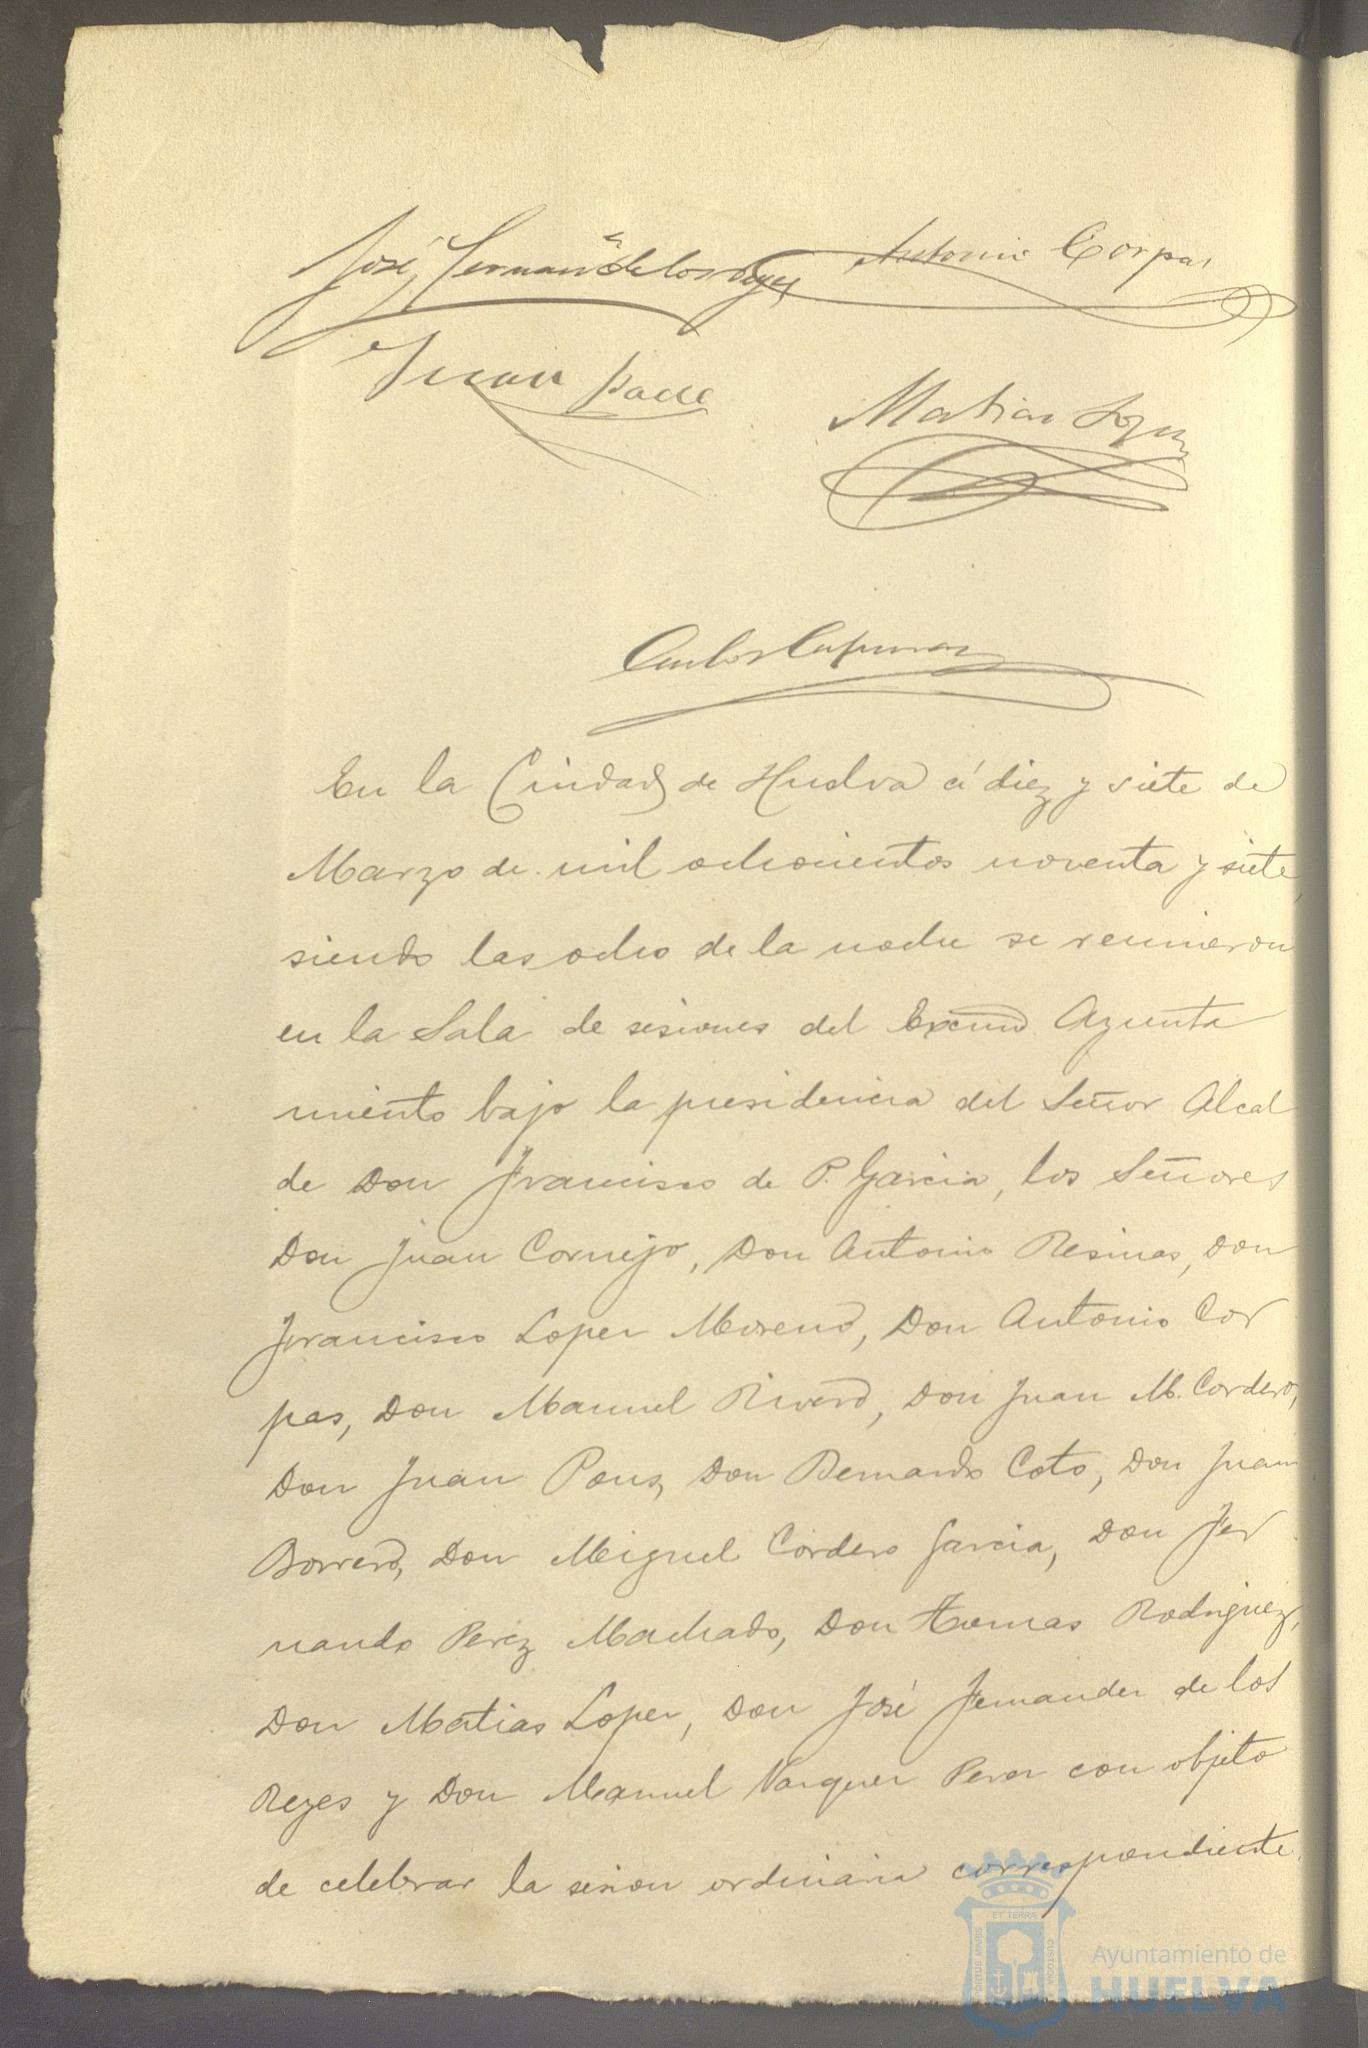 José Fernan.z de los Reyes Antonio Corpas
Juan
Matias Lopez
Carlos
En la Ciudad de Huelva á diez y siete de
Marzo de mil ochocientos noventa y siete,
siendo las ocho de la noche se reunieron
en la Sala de sesiones del Excmo. Ayunta
miento bajo la presidencia del Señor Alcal
de Don Francisco de P. Garcia, los Señores
Don Juan Cornejo, Don Antonio Resinas, Don
Francisco Lopez Moreno, Don Antonio Cor
pas, Don Manuel Rivero, Don Juan M. Cordero,
Don Juan Pons, Don Bernardo Coto, Don Juan
Borrero, Don Miguel Cordero Garcia, Don Fer
nando Perez Machado, Don Tomas Rodriguez,
Don Matias Lopez, Don José Fernandez de los
Reyes y Don Manuel Vazquez Perez con objeto
de celebrar la sesion ordinaria correspondiente.
ET TERRÆ
PORTUS MARIS
CUSTODIA
Ayuntamiento de
HUELVA